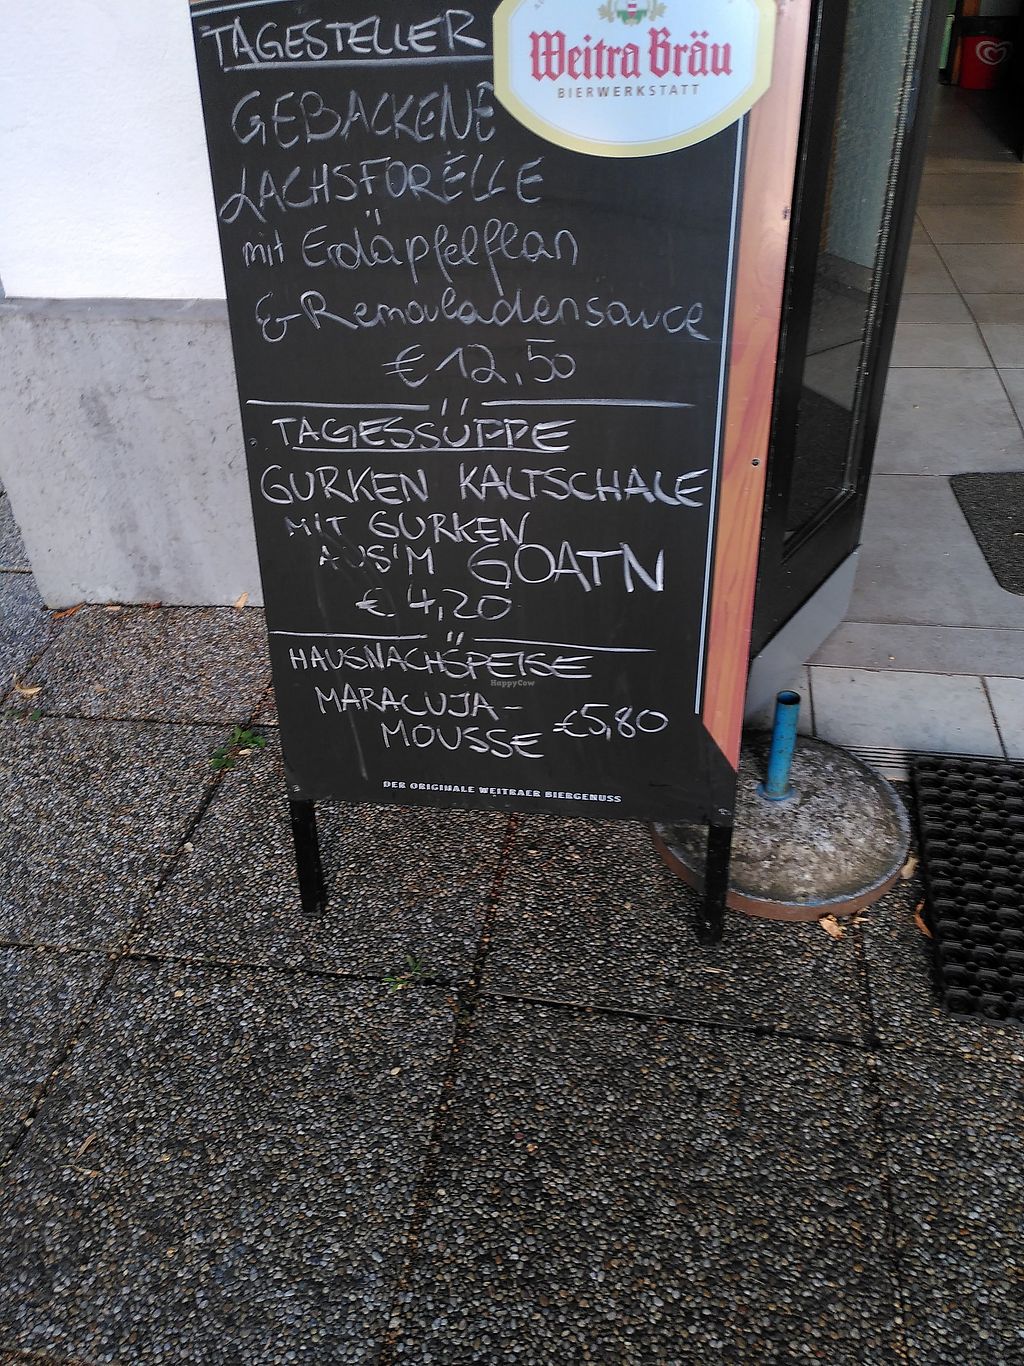 TAGESTELLER
Weitra Bräu
BIERWERKSTATT
GEBACKENE
LACHSFORELLE
mit Erdäpfelflan
& Remouladensauce
€ 12,50
TAGESSUPPE
GURKEN KALTSCHALE
MIT GURKEN
AUS'M GOATN
€ 4,20
HAUSNACHSPEISE
HappyCow
MARACUJA-
MOUSSE €5,80
DER ORIGINALE WEITRAER BIERGENUSS